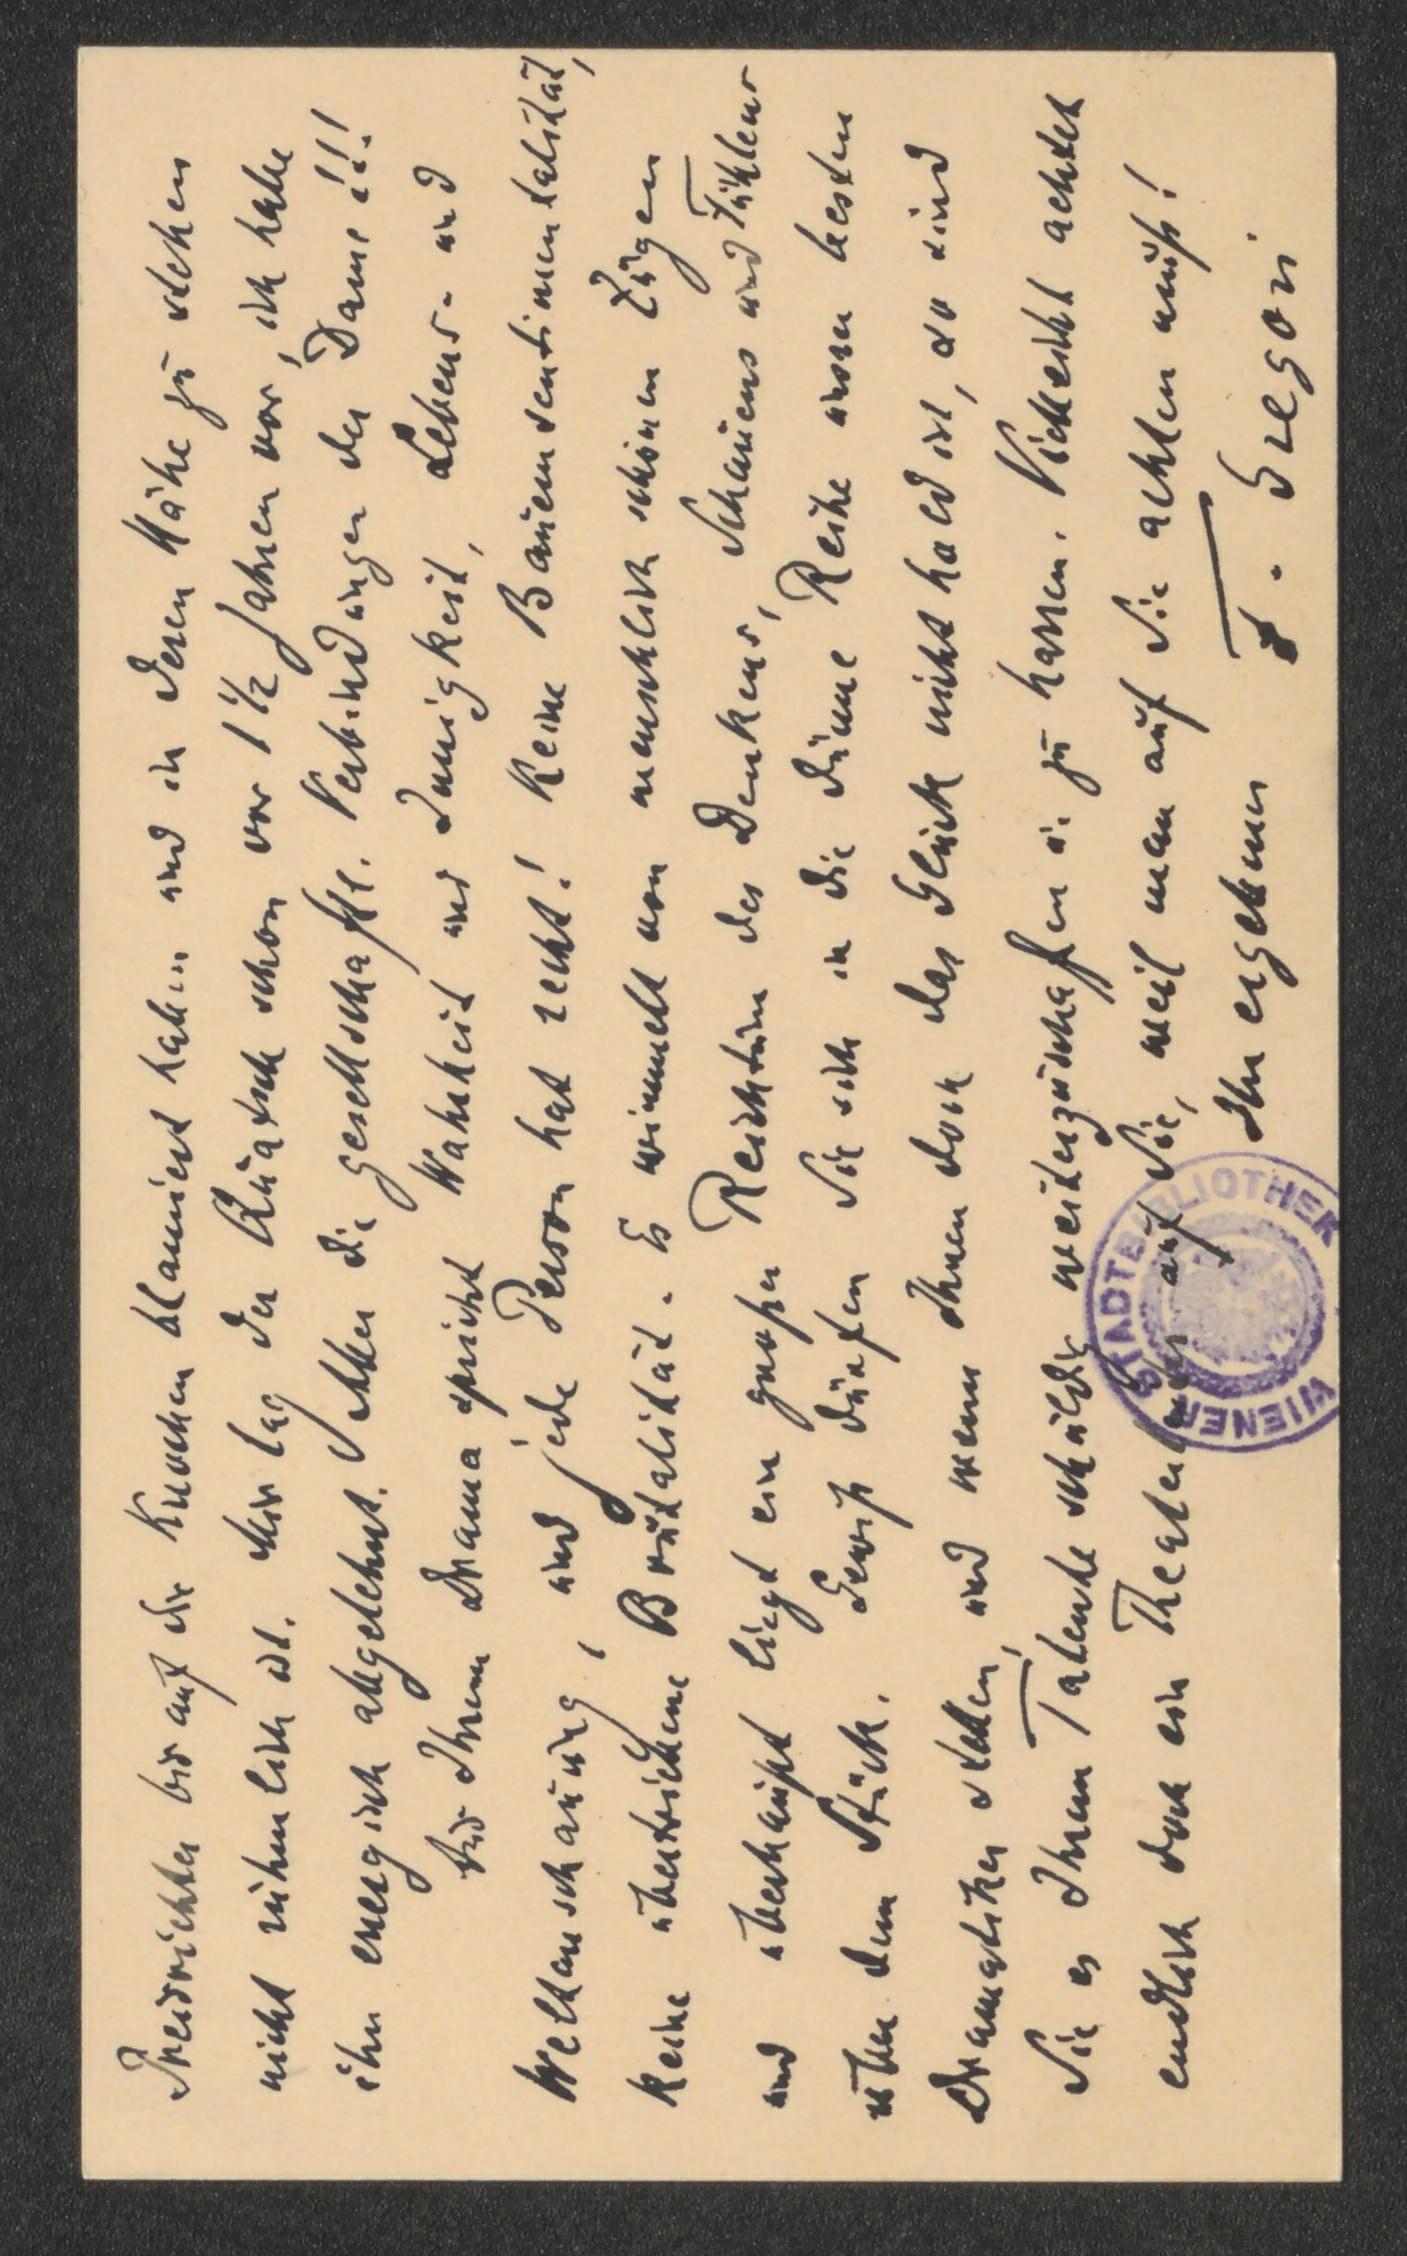 Preisrichter bis auf die Knochen blamiert haben und in deren Nähe zu stehen
nicht rühmlich ist. Mir lag der Quatsch schon vor 1½ Jahren vor, ich habe
ihn energisch abgelehnt. Aber die gesellschaftl. Verbindungen der Dame!!!
Aus Ihrem Drama spricht Wahrheit und Innigkeit, Lebens- und
Weltanschauung, und jede Person hat recht! Keine Bauernsentimentalität,
keine übertriebene Brutalität. Es wimmelt von menschlich schönen Zügen
und überhaupt liegt ein großer Reichtum des Denkens, Schauens und Fühlens
über dem Stück. Gewiß dürfen Sie sich in die dünne Reihe unserer besten
Dramatiker stellen, und wenn Ihnen doch das Glück nicht hold ist, so sind
Sie es Ihrem Talente schuldig weiterzuschaffen u. zu harren. Vielleicht achtet
endlich doch ein Theaterleiter auf Sie, weil man auf Sie achten muß!
Ihr ergebener F. Gregori
WIENER STADTBIBLIOTHEK